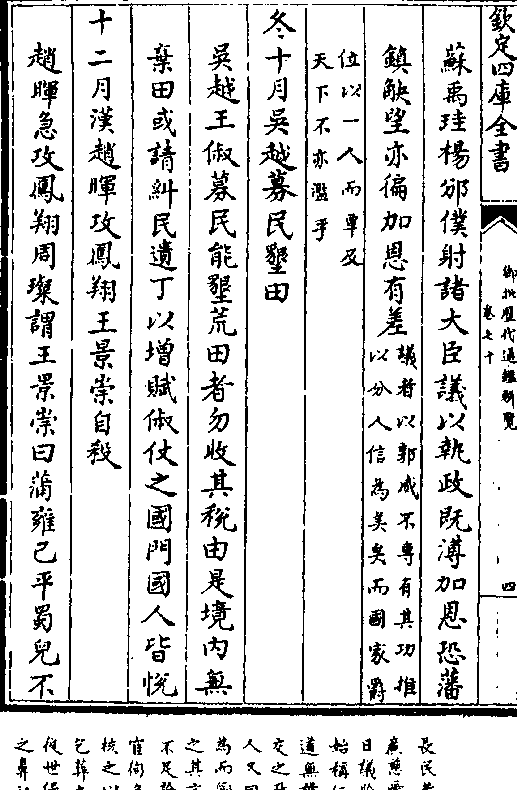 欽定四庫全書
御批歷代通鑑輯覽
卷七十
四
蘇禹珪楊邠僕射諸大臣議以執政既溥加恩恐藩
鎮觖望亦徧加恩有差
議者以郭威不專有其功推
以分人信為美矣而國家爵
位以一人而覃及
天下不亦濫乎
冬十月吳越募民墾田
吳越王俶募民能墾荒田者勿收其稅由是境內無
棄田或請糾民遺丁以增賦俶仗之國門國人皆悅
十二月漢趙暉攻鳳翔王景崇自殺
趙暉急攻鳳翔周璨謂王景崇曰蒲雍已平蜀兒不